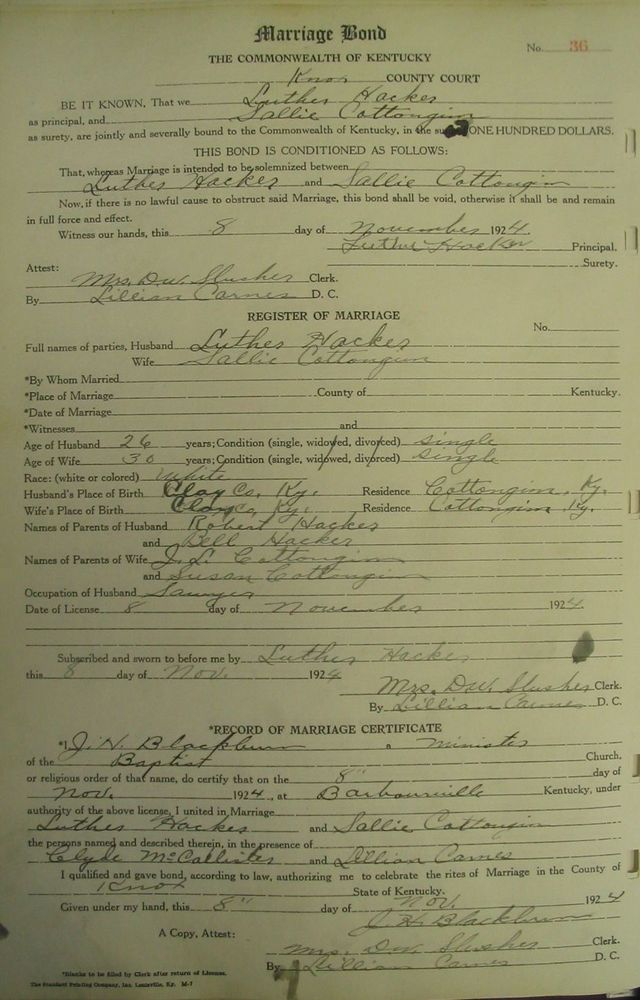 Marriage Bond
No. 36
THE COMMONWEALTH OF KENTUCKY
Knox COUNTY COURT
BE IT KNOWN, That we Luther Hacker
as principal, and Sallie Cottongim
as surety, are jointly and severally bound to the Commonwealth of Kentucky, in the sum ONE HUNDRED DOLLARS.
THIS BOND IS CONDITIONED AS FOLLOWS:
That, whereas Marriage is intended to be solemnized between
Luther Hacker and Sallie Cottongim
Now, if there is no lawful cause to obstruct said Marriage, this bond shall be void, otherwise it shall be and remain
in full force and effect.
Witness our hands, this 8 day of November 1924.
Luther Hacker Principal.
Surety.
Attest:
Mrs. D.W. Slusher Clerk.
By Lillian Carnes D. C.
REGISTER OF MARRIAGE
No.
Full names of parties, Husband Luther Hacker
Wife Sallie Cottongim
*By Whom Married
*Place of Marriage County of Kentucky.
*Date of Marriage
*Witnesses and
Age of Husband 26 years; Condition (single, widowed, divorced) single
Age of Wife 30 years; Condition (single, widowed, divorced) single
Race: (white or colored) White
Husband's Place of Birth Clay Co. Ky. Residence Cottongim, Ky.
Wife's Place of Birth Clay Co. Ky. Residence Cottongim Ky.
Names of Parents of Husband Robert Hacker
and Bell Hacker
Names of Parents of Wife J. L. Cottongim
and Susan Cottongim
Occupation of Husband Sawyer
Date of License 8 day of November 1924.
Subscribed and sworn to before me by Luther Hacker
this 8 day of Nov. 1924
Mrs. D.W. Slusher Clerk.
By Lillian Carnes D. C.
*RECORD OF MARRIAGE CERTIFICATE
*I, J. H. Blackburn a minister
of the Baptist Church,
or religious order of that name, do certify that on the 8" day of
Nov. 1924, at Barbourville Kentucky, under
authority of the above license, I united in Marriage
Luther Hacker and Sallie Cottongim
the persons named and described therein, in the presence of
Clyde McCallister and Lillian Carnes
I qualified and gave bond, according to law, authorizing me to celebrate the rites of Marriage in the County of
Knox State of Kentucky.
Given under my hand, this 8" day of Nov. 1924
J. H. Blackburn
A Copy, Attest:
Mrs. D.W. Slusher Clerk.
By Lillian Carnes D. C.
*Blanks to be filled by Clerk after return of License.
The Standard Printing Company, Inc. Louisville, Ky. M-7